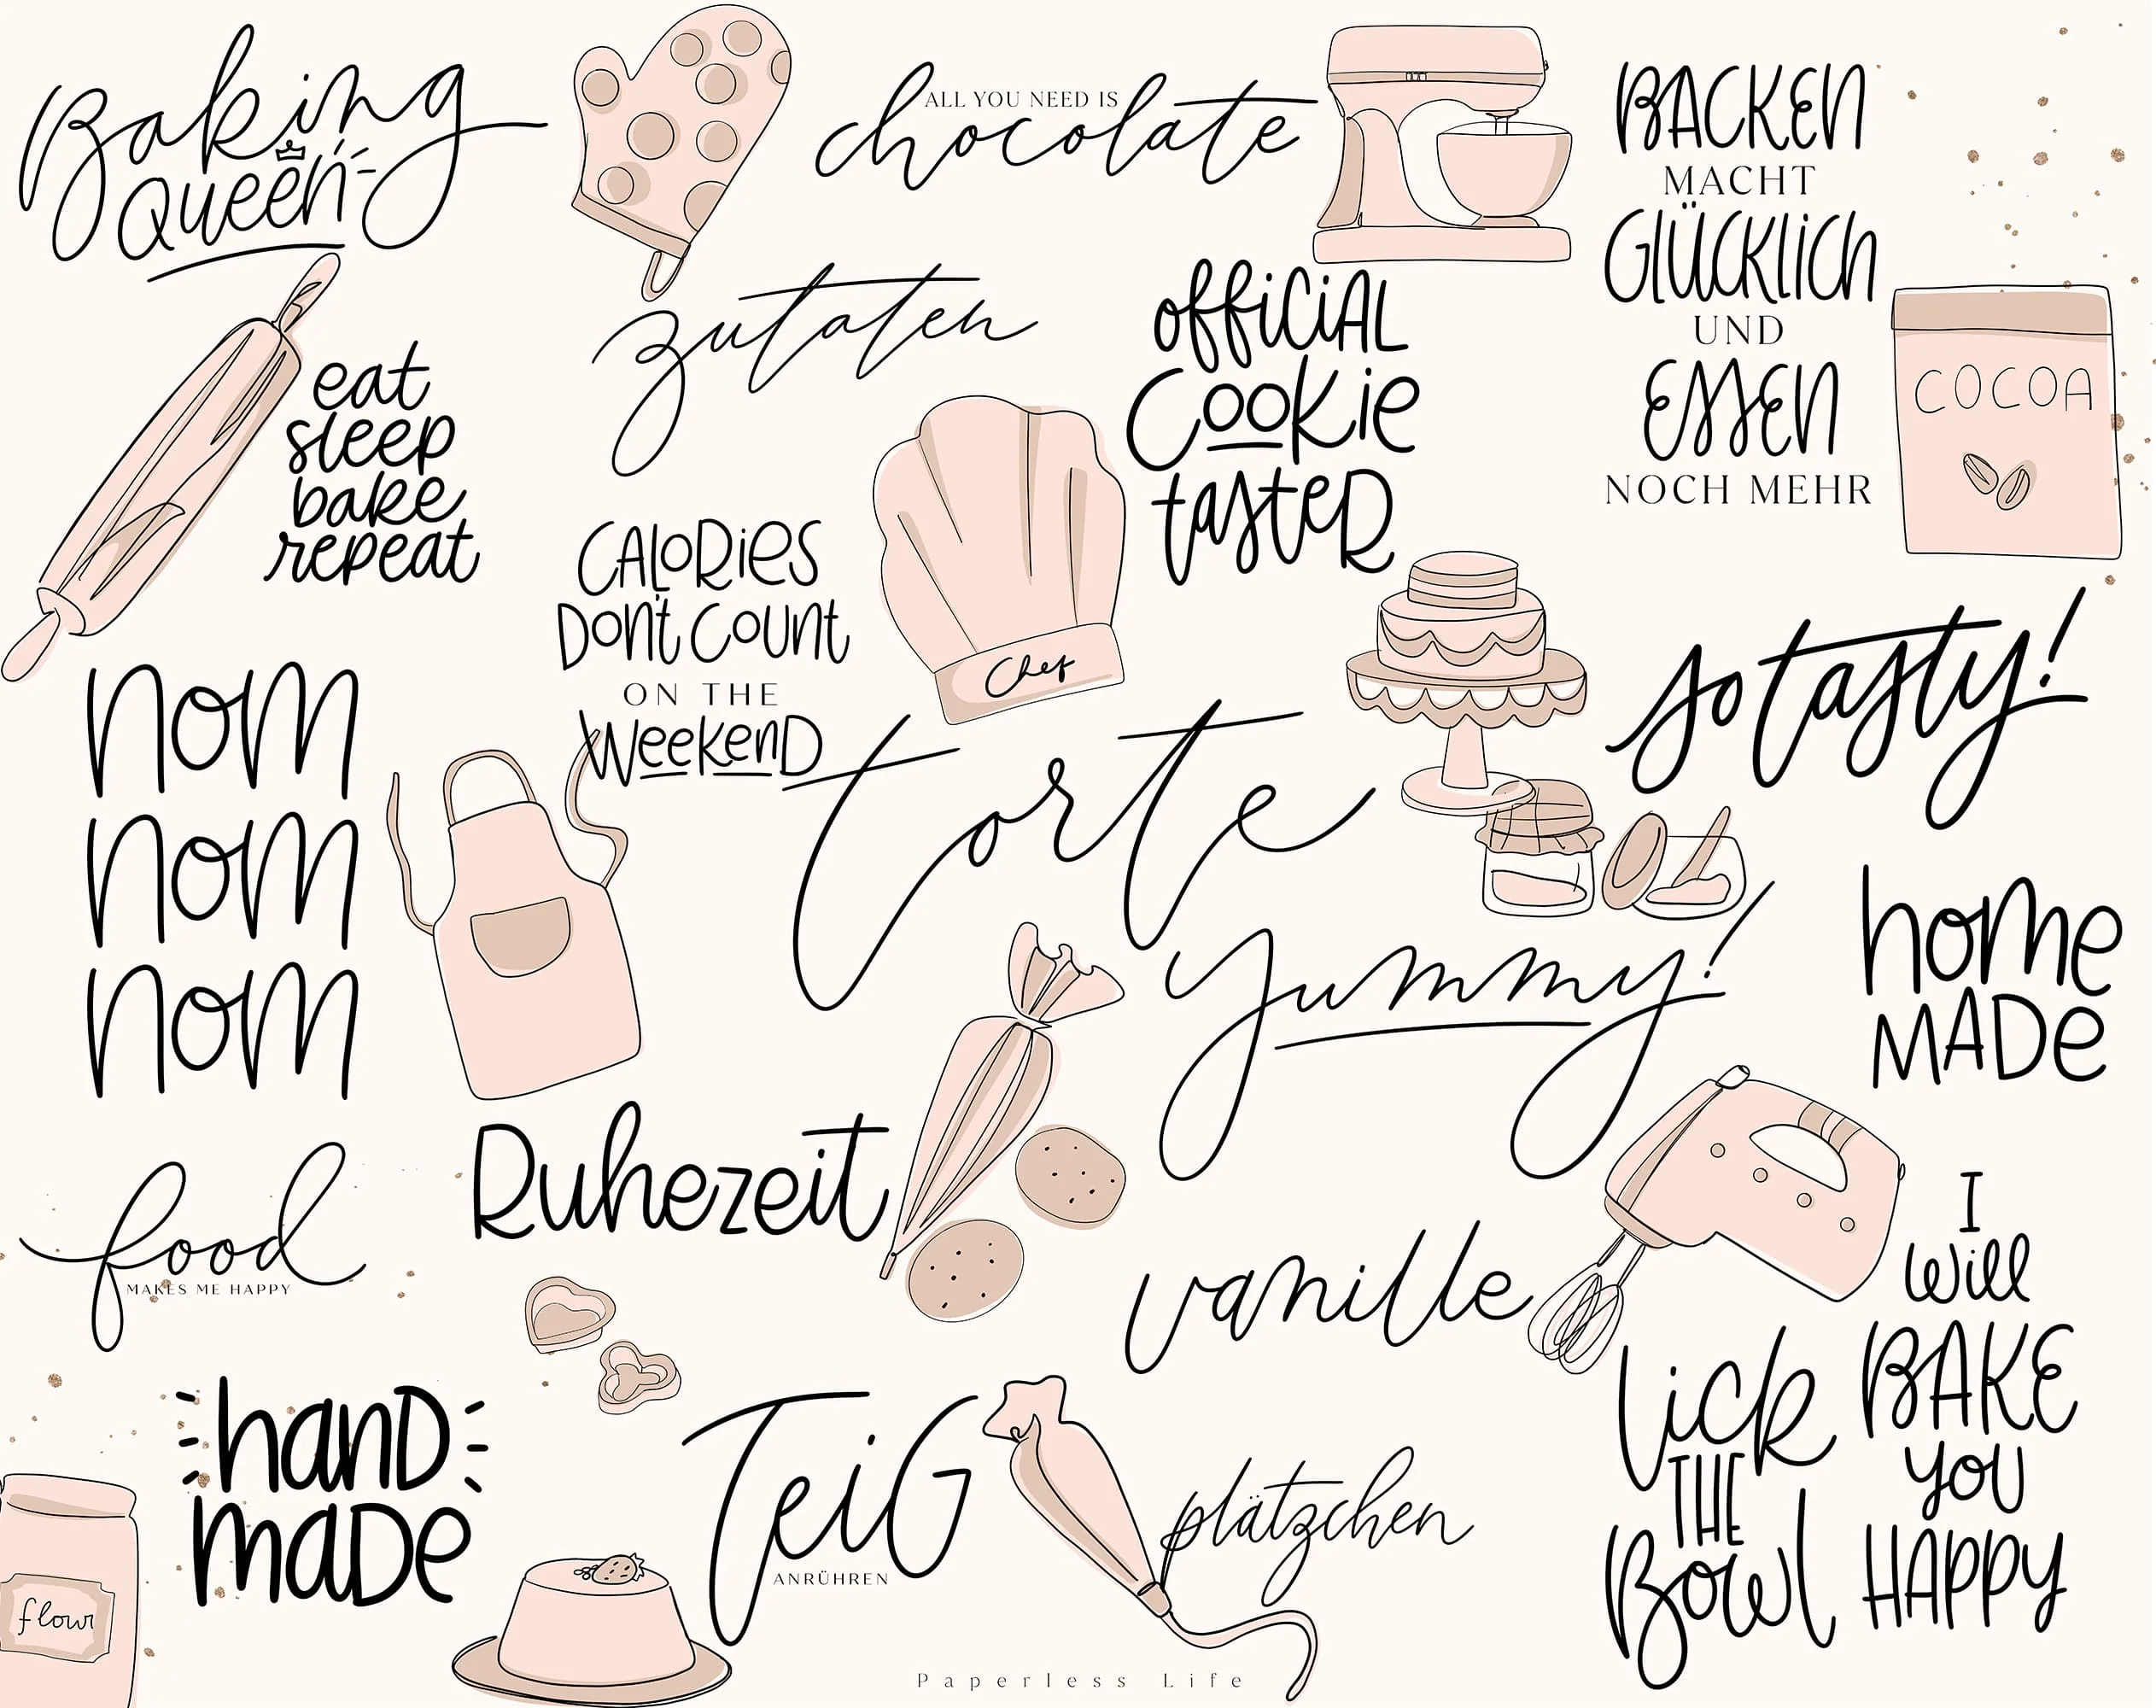 Baking
Queen
ALL YOU NEED IS
chocolate
BACKEN
MACHT
GLÜCKLICH
UND
ESSEN
NOCH MEHR
zutaten
official
cookie
tasteR
COCOA
eat
sleep
bake
repeat
CALORIES
DON'T COUNT
ON THE
WeekenD
Chef
so tasty!
nom
nom
nom
Torte
yummy!
home
MADe
Ruhezeit
food
MAKES ME HAPPY
vanille
I
will
BAKE
you
HAPPY
lick
THE
Bowl
hanD
maDe
TeiG
ANRÜHREN
plätzchen
flour
Paperless Life